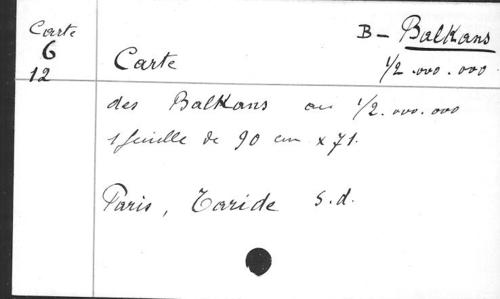 Carte
6
12
B - Balkans
1/2.000.000
Carte
des Balkans au 1/2.000.000
1 feuille de 90 cm x 71.
Paris, Taride s.d.